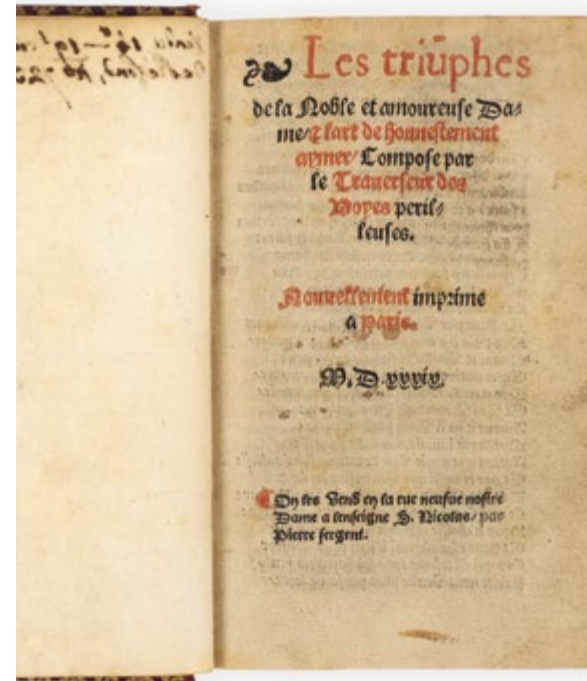 Les triūphes
de la Noble et amoureuse Da-
me/ & lart de honnestement
aymer/ Compose par
le Trauerseur des
Voyes peril-
leuses.
Nouuellement imprime
a paris.
M. D. xxxix.
On les vend en la rue neufue nostre
Dame a lenseigne S. Nicolas/ par
Pierre sergent.